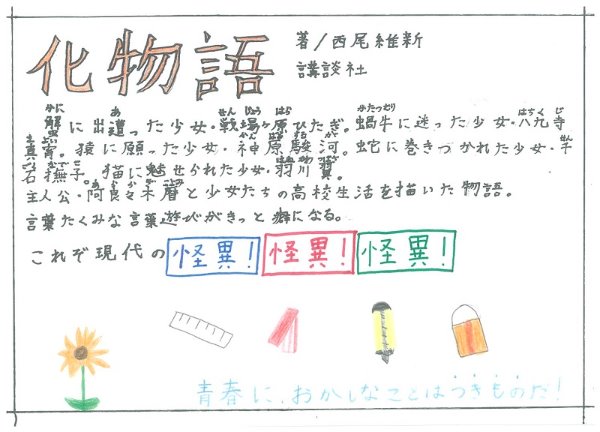 化物語
著/西尾維新
講談社
蟹に出遭った少女・戦場ヶ原ひたぎ。蝸牛に迷った少女・八九寺
真宵。猿に願った少女・神原駿河。蛇に巻きつかれた少女・千
石撫子。猫に魅せられた少女・羽川翼。
主人公・阿良々木暦と少女たちの高校生活を描いた物語。
言葉たくみな言葉遊びがきっと癖になる。
これぞ現代の怪異!怪異!怪異!
青春に、おかしなことはつきものだ!